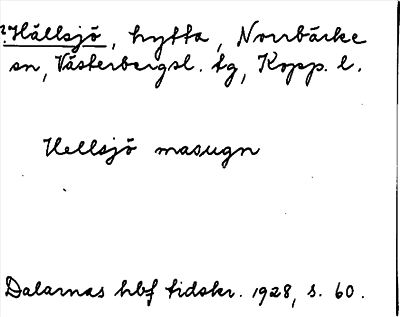 ?Hällsjö, hytta, Norrbärke
sn, Västerbergsl. tg, Kopp. l.
Hellsjö masugn
Dalarnas hbf tidskr. 1928, s. 60.